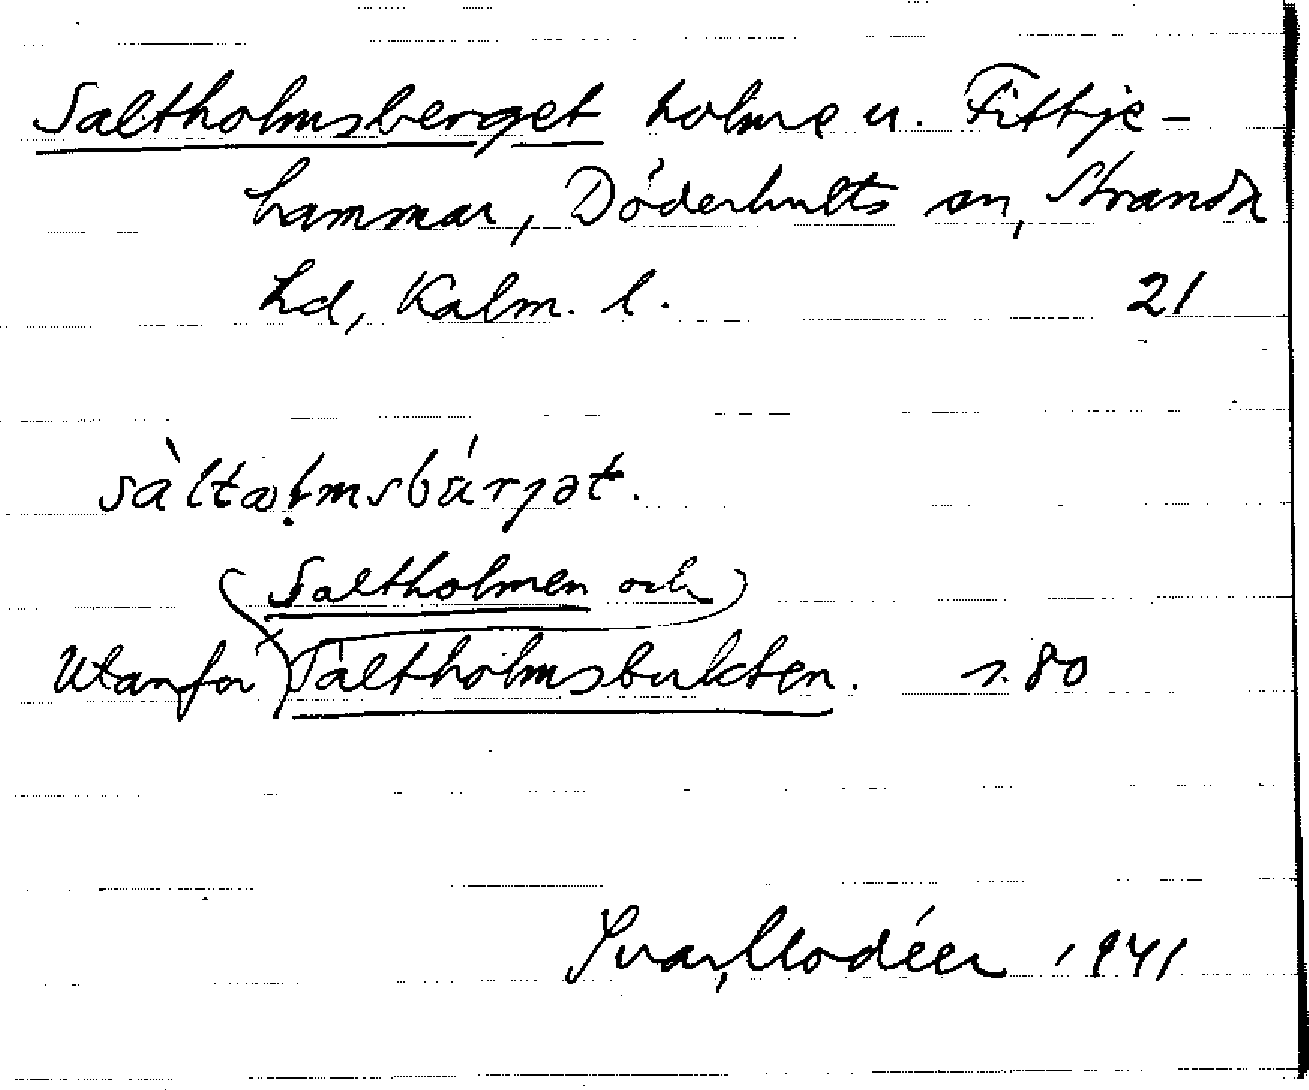 Saltholmsberget holme u. Fittje-
hammar, Döderhults sn, Stranda
hd, Kalm. l. 21
sàltəlmsbárjət.
(Saltholmen och)
Utanför Saltholmsbukten. s. 80
Ivar Modéer 1941